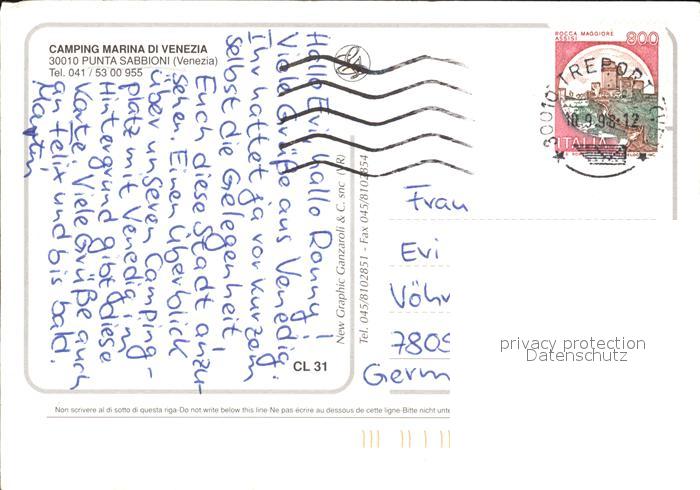 CAMPING MARINA DI VENEZIA
30010 PUNTA SABBIONI (Venezia)
Tel. 041 / 53 00 955
Hallo Evi, hallo Ronny!
Viele Grüße aus Venedig.
Ihr hattet ja vor kurzem
selbst die Gelegenheit
Euch diese Stadt anzu-
sehen. Einen Überblick
über unseren Camping-
platz mit Venedig im
Hintergrund gibt diese
Karte. Viele Grüße auch
an Felix und bis bald.
Martin
CL 31
New Graphic Ganzaroli & C. snc (VR)
Tel. 045/8102851 - Fax 045/8102854
ROCCA MAGGIORE
ASSISI
800
ITALIA
30010 TREPORTI
10.9.98-12
Frau
Evi
Vöhr
7805
Germ
privacy protection
Datenschutz
Non scrivere al di sotto di questa riga-Do not write below this line-Ne pas écrire au dessous de cette ligne-Bitte nicht unte